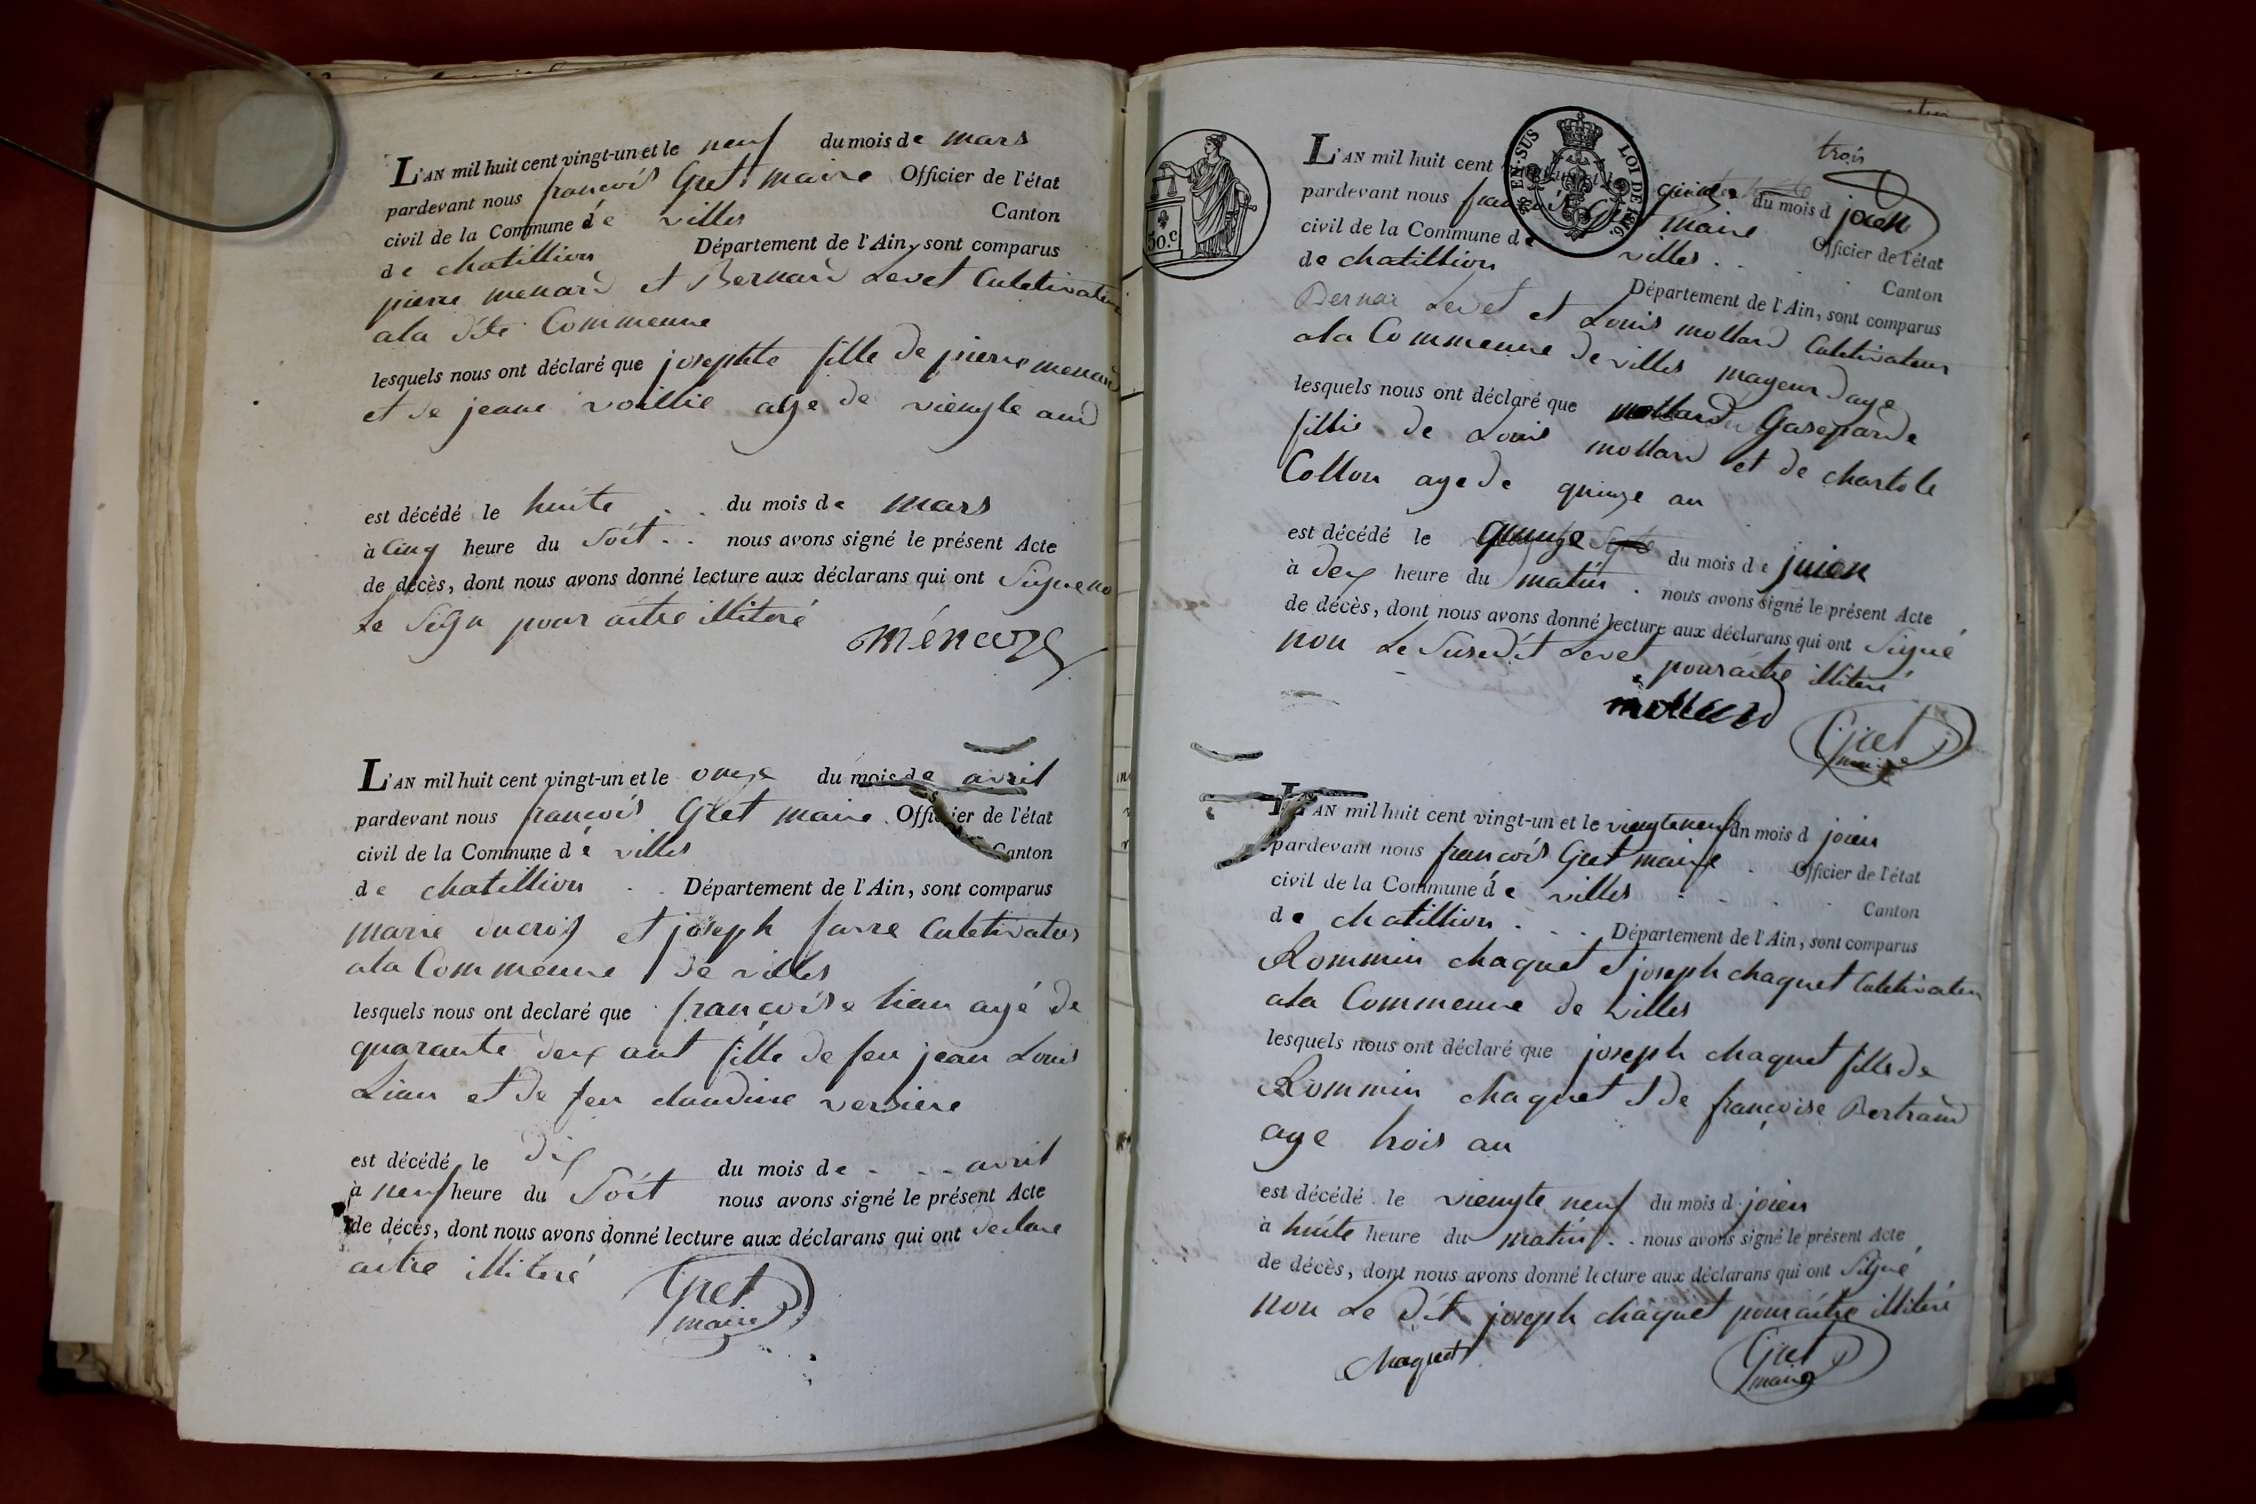 L'AN mil huit cent vingt-un et le neuf du mois de mars
pardevant nous françois Gret maire Officier de l'état
civil de la Commune de villes Canton
de chatillion Département de l'Ain, sont comparus
pierre menard et Bernard Levet Cultivateur
a la dite Commeune
lesquels nous ont déclaré que josephte fille de pierre menard
et de jeane age de viengte and
est décédé le huite du mois de mars
à Cinq heure du Soit nous avons signé le présent Acte
de décès, dont nous avons donné lecture aux déclarans qui ont Signe no
Le pour aitre illiteré
L'AN mil huit cent vingt-un et le onze du mois de avril
pardevant nous françois Gret maire Officier de l'état
civil de la Commune de villes Canton
de chatillion Département de l'Ain, sont comparus
marie ducroz et joseph favre Cultivateur
a la Commeune de villes
lesquels nous ont declaré que françoise lian agé de
quarante deux ant fille de feu jean Louis
Lian et de feu claudine versiere
est décédé le dix du mois de avril
à neuf heure du Soit nous avons signé le présent Acte
de décès, dont nous avons donné lecture aux déclarans qui ont declare
aitre illiteré
Gret
maire
trois
50.c
25 EN-SUS LOI DE 1816.
L'AN mil huit cent du mois d
pardevant nous Gret maire Officier de l'état
civil de la Commune de villes Canton
de chatillion Département de l'Ain, sont comparus
Bernar Levet et Louis mollard Cultivateur
a la Commeune de villes mageur dage
lesquels nous ont déclaré que mollard Gasparde
fillie de Louis mollard et de charlote
Collou age de quinze an
est décédé le quinze du mois de juien
à deux heure du matin nous avons signé le présent Acte
de décès, dont nous avons donné lecture aux déclarans qui ont Signé
non Le Susedit Levet pour aitre illiteré
mollard
Gret
maire
L'AN mil huit cent vingt-un et le viengteneuf du mois d joien
pardevant nous françois Gret maire Officier de l'état
civil de la Commune de villes Canton
de chatillion Département de l'Ain, sont comparus
Rommin chaquet et joseph chaquet Cultivateur
a la Commeune de villes
lesquels nous ont déclaré que joseph chaquet fills de
Rommin chaquet et de françoise Bertrand
age trois an
est décédé le viengte neuf du mois d joien
à huite heure du matin nous avons signé le présent Acte
de décès, dont nous avons donné lecture aux déclarans qui ont Signé
non Le dit joseph chaquet pour aitre illiteré
chaquet
Gret
maire